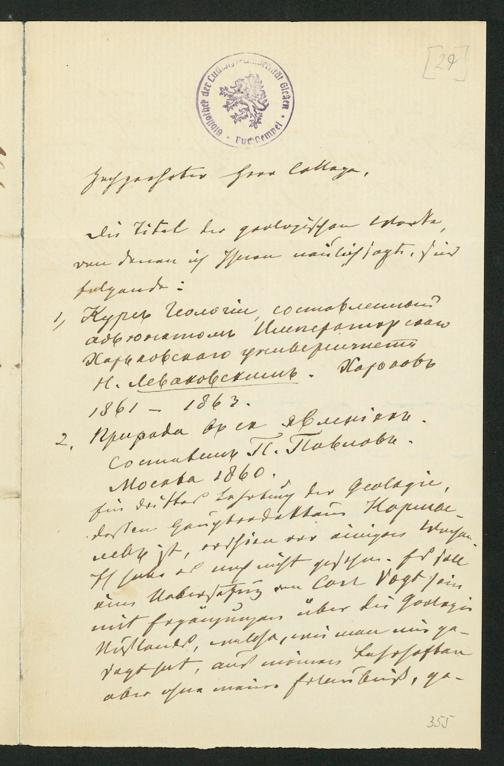 [29]
Bibliothek der Ludwigs-Universität Giessen
Hochgeehrter Herr College,
Die Titel der geologischen Werke,
von denen ich Ihnen neulich sagte, sind
folgende:
1, Курсъ Геологіи, составленный
адъюнктомъ Императорскаго
Харьковскаго университета
И. Леваковскимъ. Харьковъ
1861 – 1863.
2. Природа въ ея явленіяхъ.
Составилъ П. Павловъ.
Москва 1860.
Ein drittes Lehrbuch der Geologie,
dessen Hauptredakteur
ist, erschien vor einigen Wochen.
Ich habe es noch nicht gesehen. Es soll
eine Uebersetzung von Carl Vogt sein
mit Ergänzungen über die Geologie
Russlands, welche, wie man mir ge-
sagt hat, aus meinen
aber ohne meine Erlaubniß, ge-
355